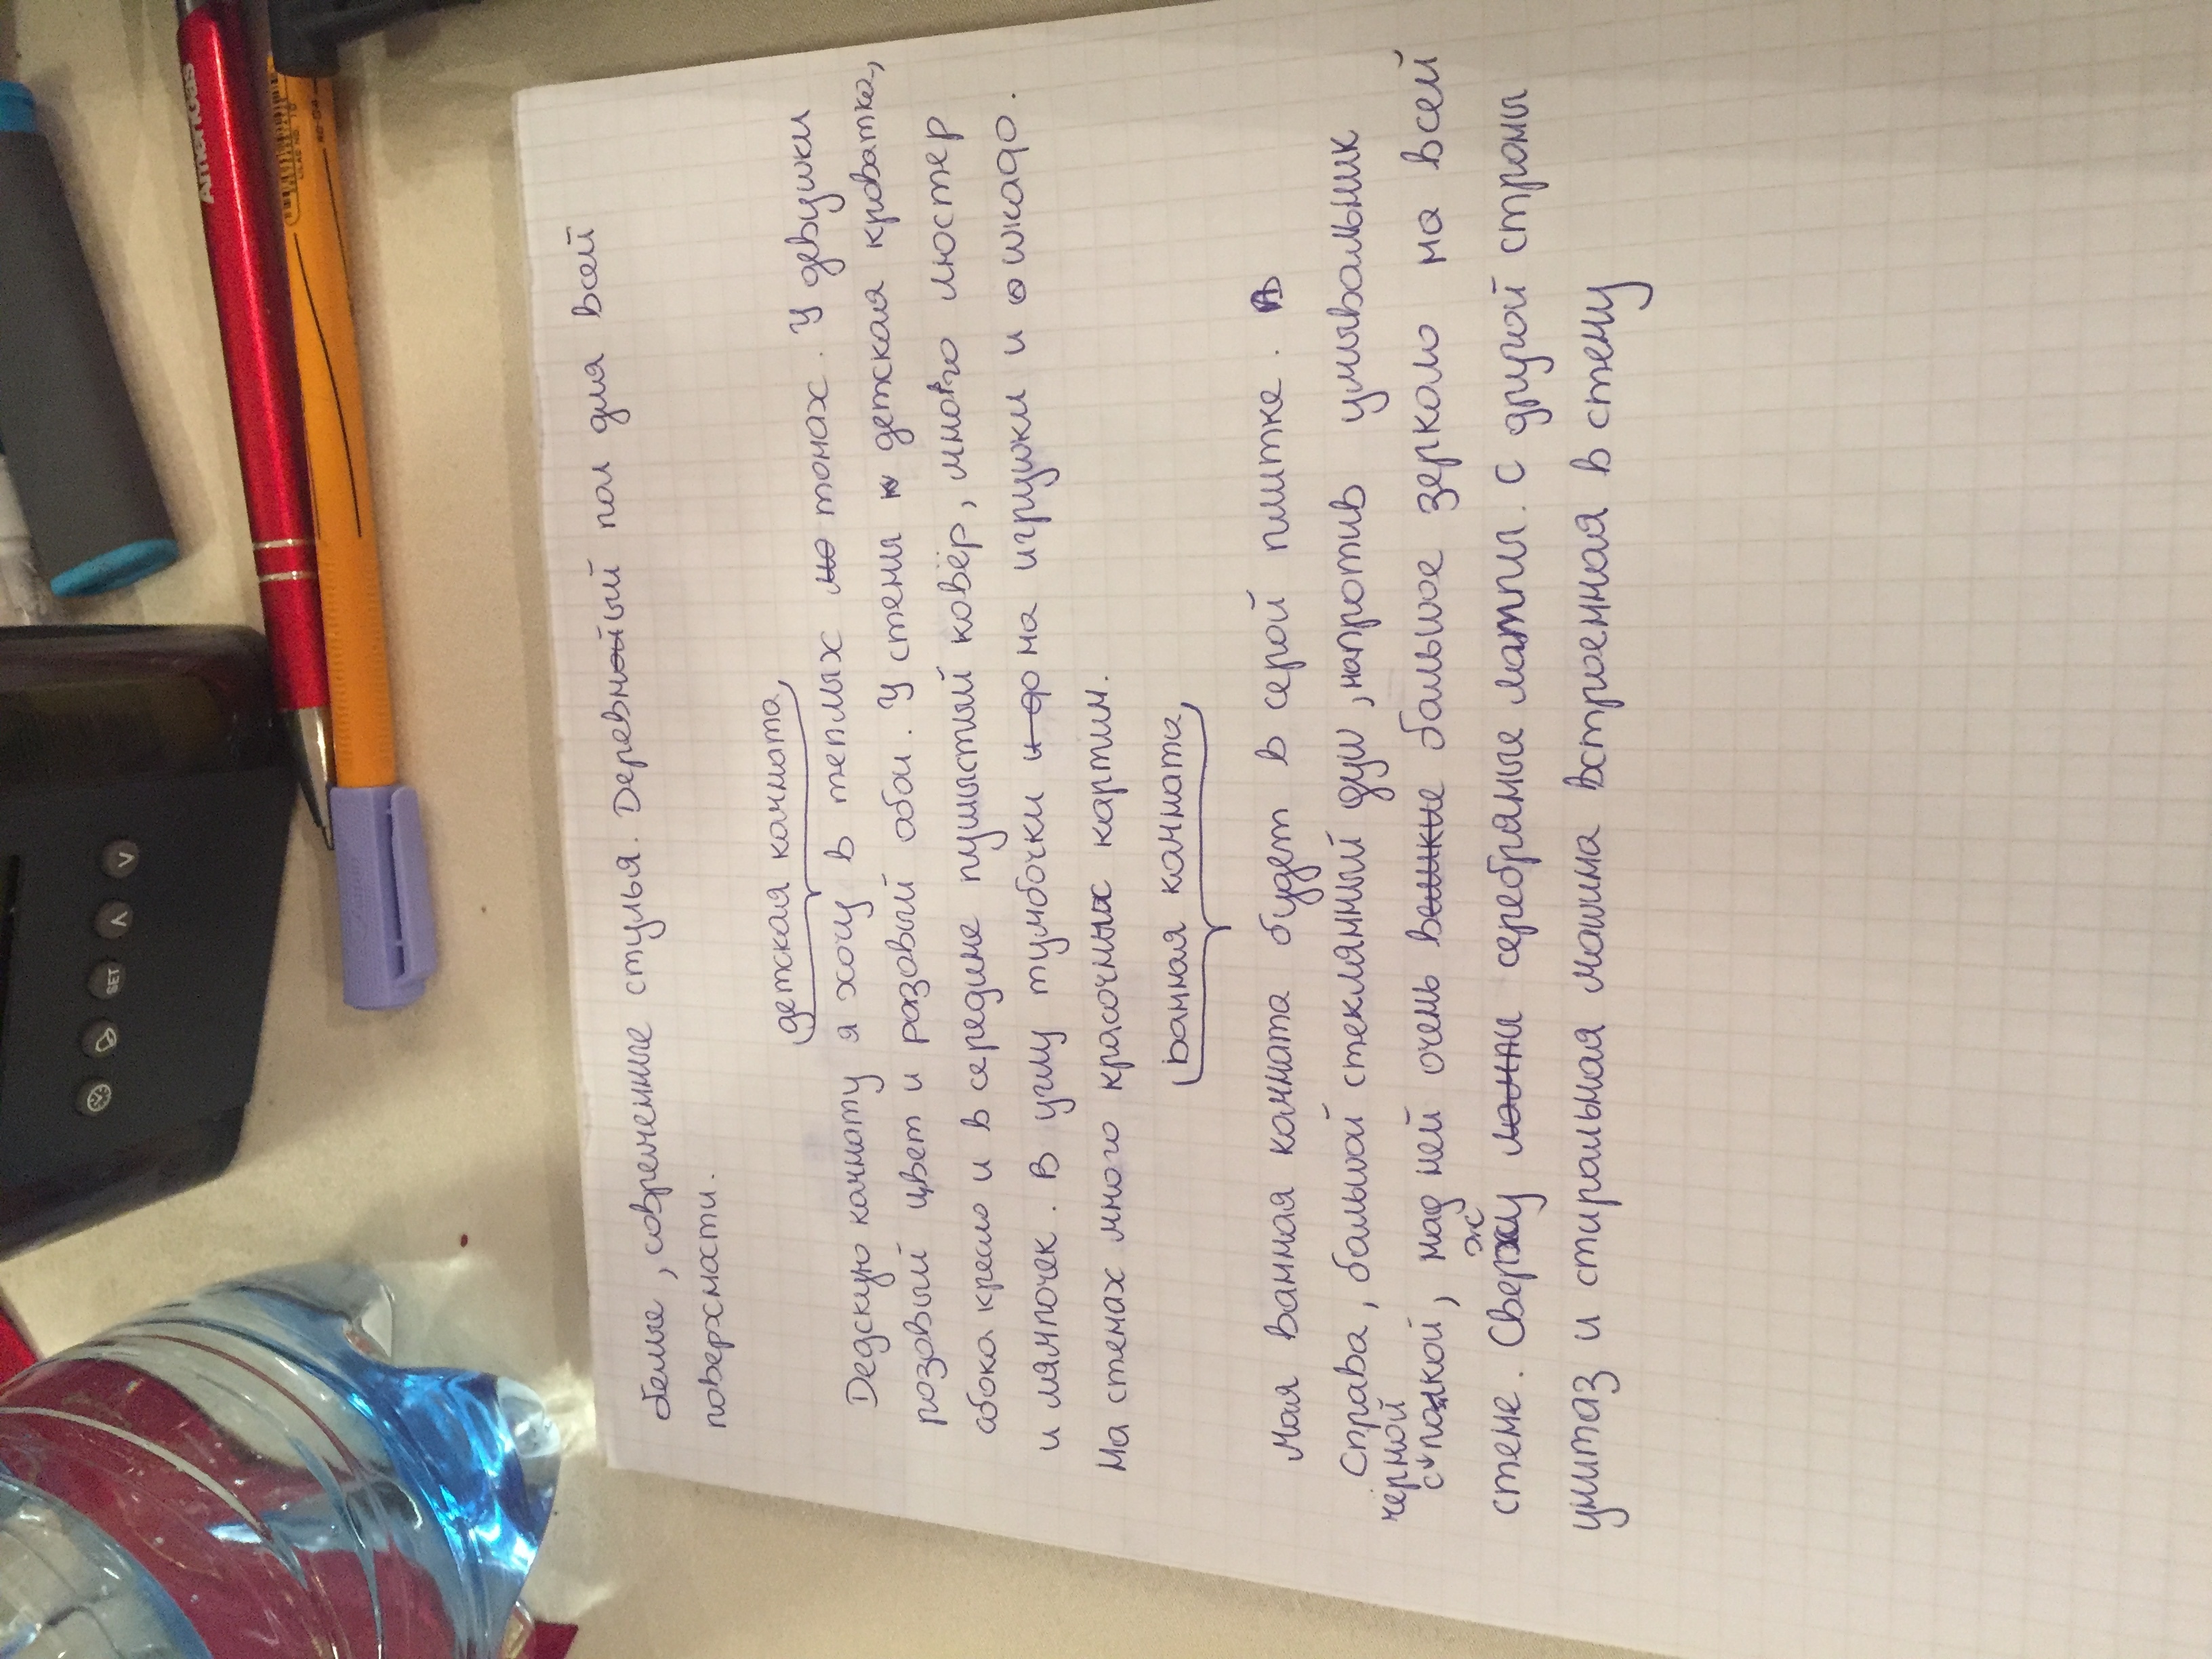 белые, современные стулья. Деревный пол для всей
поверхности.
детская комната
Дедскую комнату я хочу в теплых тонах. У девушки
розовый цвет и розовый обои. У стены детская кроватка,
обока кресло и в середине пушыстый ковёр, много люстер
и лямпочек. В углу тумбочки на игрушки и шкафо.
На стенах много красочных картин.
ванная комната
Моя ванная комната будет в серой плитке.
Справа, большой стеклянный душ, напротив умывальник
чёрной
с полкой, над ней очень большое зеркало на всей
ж
стене. Сверху серебряные лампы. С другой строны
умитаз и стиральная машина встроенная в стену
Americas
SET